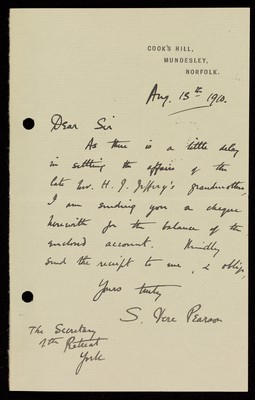 COOK'S HILL,
MUNDESLEY,
NORFOLK.
Aug. 13th 1910.
Dear Sir
As there is a little delay
in settling the affairs of the
late Mr. H. J. Jeffery's grandmother,
I am sending you a cheque
herewith for the balance of the
enclosed account. Kindly
send the receipt to me, & oblige,
Yours truly
S. Vere Pearson
The Secretary
The Retreat
York